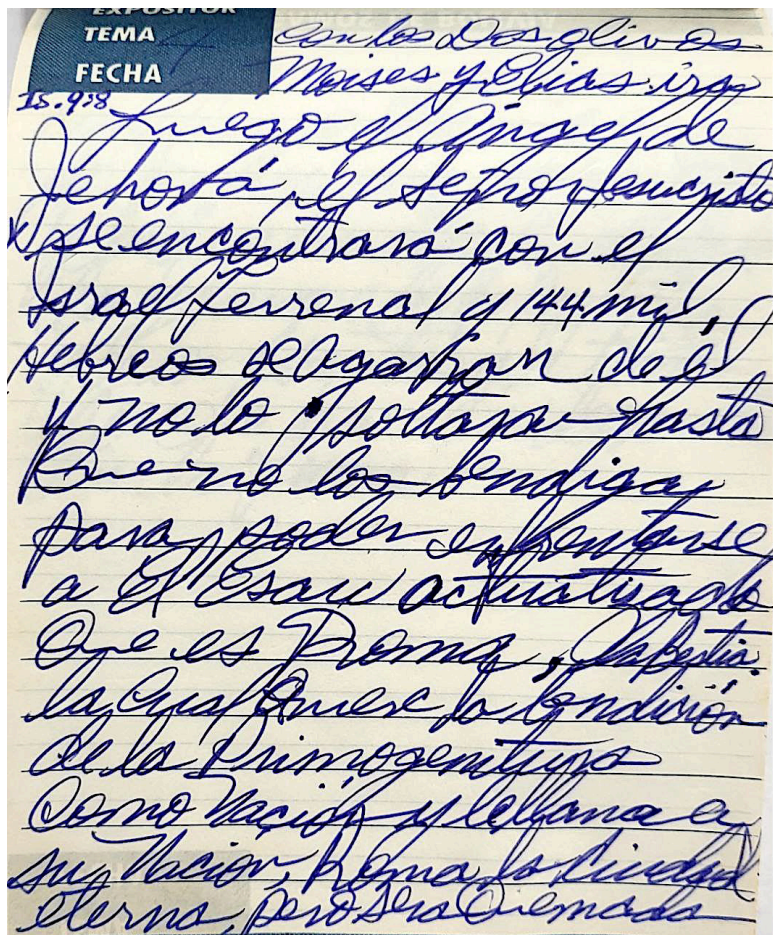 EXPOSITOR
TEMA 4 con los Dos olivos
FECHA Moises y Elias ira
IS. 9:8 Luego el Angel de
Jehová, el Señor Jesucristo
se encontrará con el
Israel terrenal y 144 mil
Hebreos se agarran de él
y no lo soltaran hasta
Que no los bendiga
para poder enfrentarse
a el Esau actualizado
Que es Roma, la bestia.
la cual Quiere la bendición
de la Primogenitura
Como Nación y le llama a
su Nacion, Roma la Ciudad
eterna, pero sera Quemada